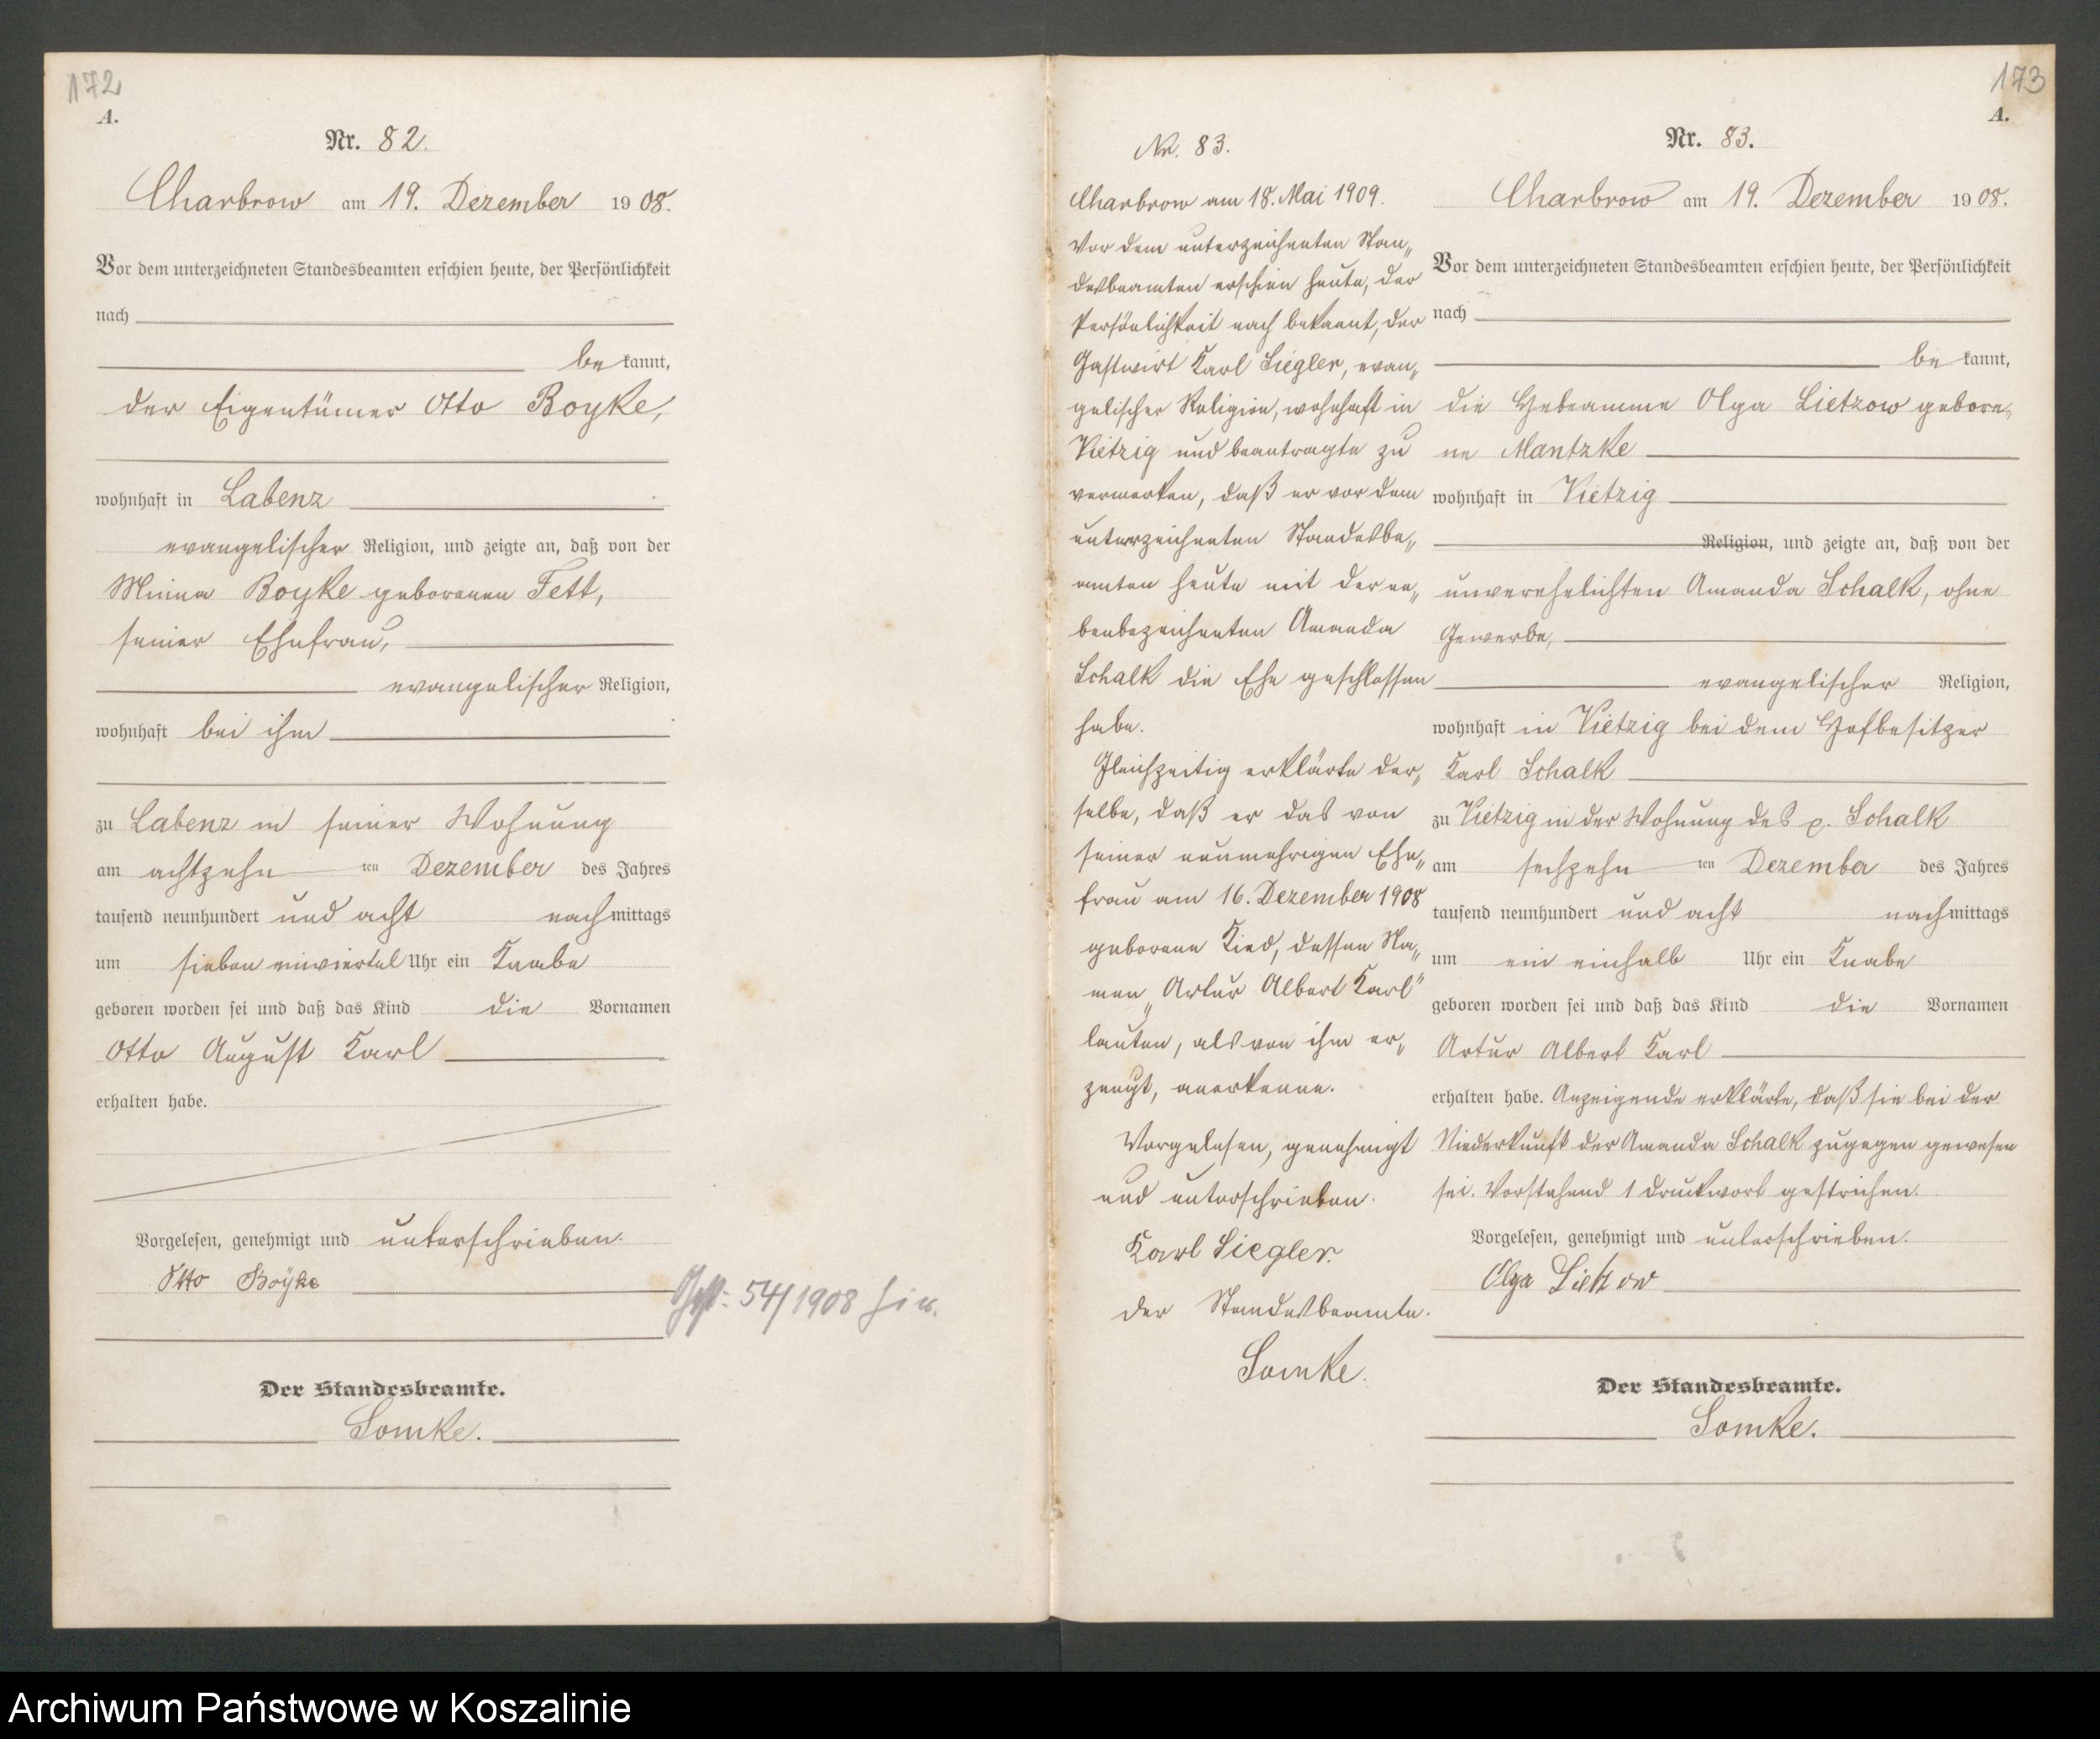 172
A.
Nr. 82.
Charbrow am 19. Dezember 1908.
Vor dem unterzeichneten Standesbeamten erschien heute, der Persönlichkeit
nach
be kannt,
der Eigentümer Otto Boyke,
wohnhaft in Labenz
evangelischer Religion, und zeigte an, daß von der
Minna Boyke geborenen Fett,
seiner Ehefrau,
evangelischer Religion,
wohnhaft bei ihm
zu Labenz in seiner Wohnung
am achtzehn ten Dezember des Jahres
tausend neunhundert und acht nachmittags
um sieben einviertel Uhr ein Knabe
geboren worden sei und daß das Kind die Vornamen
Otto August Karl
erhalten habe.
Vorgelesen, genehmigt und unterschrieben.
Otto Boyke
54/1908
Der Standesbeamte.
Somke.
Nr. 83.
Charbrow am 18. Mai 1909.
Vor dem unterzeichneten Stan„
desbeamten erschien heute, der
Persönlichkeit nach bekannt, der
Gastwirt Karl Siegler, evan„
gelischer Religion, wohnhaft in
Vietzig und beantragte zu
vermerken, daß er vor dem
unterzeichneten Standesbe„
amten heute mit der ne„
benbezeichneten Amanda
Schalk die Ehe geschlossen
habe.
Gleichzeitig erklärte der„
selbe, daß er das von
seiner nunmehrigen Ehe„
frau am 16. Dezember 1908
geborene Kind, dessen Na„
men „Artur Albert Karl"
lauten, als von ihm er„
zeugt, anerkenne.
Vorgelesen, genehmigt
und unterschrieben.
Karl Siegler.
Der Standesbeamte.
Somke.
173
A.
Nr. 83.
Charbrow am 19. Dezember 1908.
Vor dem unterzeichneten Standesbeamten erschien heute, der Persönlichkeit
nach
be kannt,
die Hebeamme Olga Lietzow gebore„
ne Mantzke
wohnhaft in Vietzig
Religion, und zeigte an, daß von der
unverehelichten Amanda Schalk, ohne
Gewerbe,
evangelischer Religion,
wohnhaft in Vietzig bei dem Hofbesitzer
Karl Schalk
zu Vietzig in der Wohnung des p. Schalk
am sechzehn ten Dezember des Jahres
tausend neunhundert und acht nachmittags
um ein einhalb Uhr ein Knabe
geboren worden sei und daß das Kind die Vornamen
Artur Albert Karl
erhalten habe. Anzeigende erklärte, daß sie bei der
Niederkunft der Amanda Schalk zugegen gewesen
sei. Vorstehend 1 Druckwort gestrichen.
Vorgelesen, genehmigt und unterschrieben.
Olga Lietzow
Der Standesbeamte.
Somke.
Archiwum Państwowe w Koszalinie